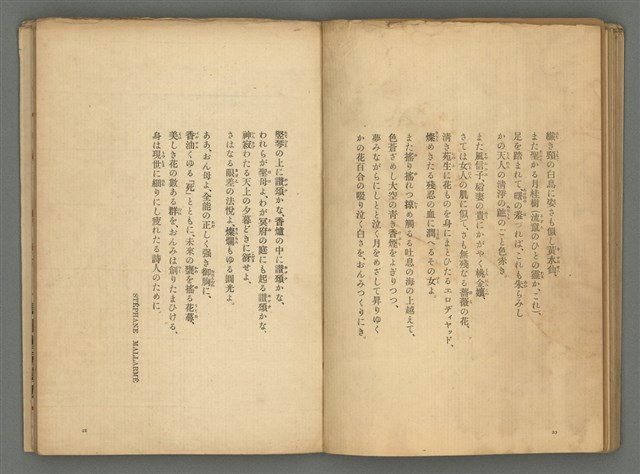 繊き頸の白鳥に姿さも似し黄水仙、
また聖かる月桂樹、流竄のひとの靈か、これ、
足を踏まれて、曙の羞づれば、これも朱らみし
かの天人の清浄の趾のごと色赤き。
また風信子、稲妻の貴にかがやく桃金孃、
さては女人の肌に似て、さも無殘なる薔薇の花、
清き苑生に花ものを身にまとひたるエロディヤッド、
燦めきたる殘忍の血に潤へるその女よ。
また搖り搖れつ掠め觸るる吐息の海の上越えて、
色蒼ざめし大空の青き香煙をよぎりつつ、
夢みながらにしとと泣く月をめざして昇りゆく
かの花百合の啜り泣く白さをおんみつくりにき。
竪琴の上に讃頌かな、香爐の中に讃頌かな、
われらが聖母よ、わが冥府の庭にも起る讃頌かな、
神寂わたる天上の夕暮どきに谺せよ、
さはなる眼差の法悅よ、燦爛もゆる圓光よ。
ああ、おん母よ、全能の正しく强き御胸に、
香油くゆる「死」とともに、未來の甕を搖る花蔓、
美しき花の數ある群を、おんみは創りたまひける、
身は現世に細りにし疲れたる詩人のために。
STÉPHANE MALLARMÉ